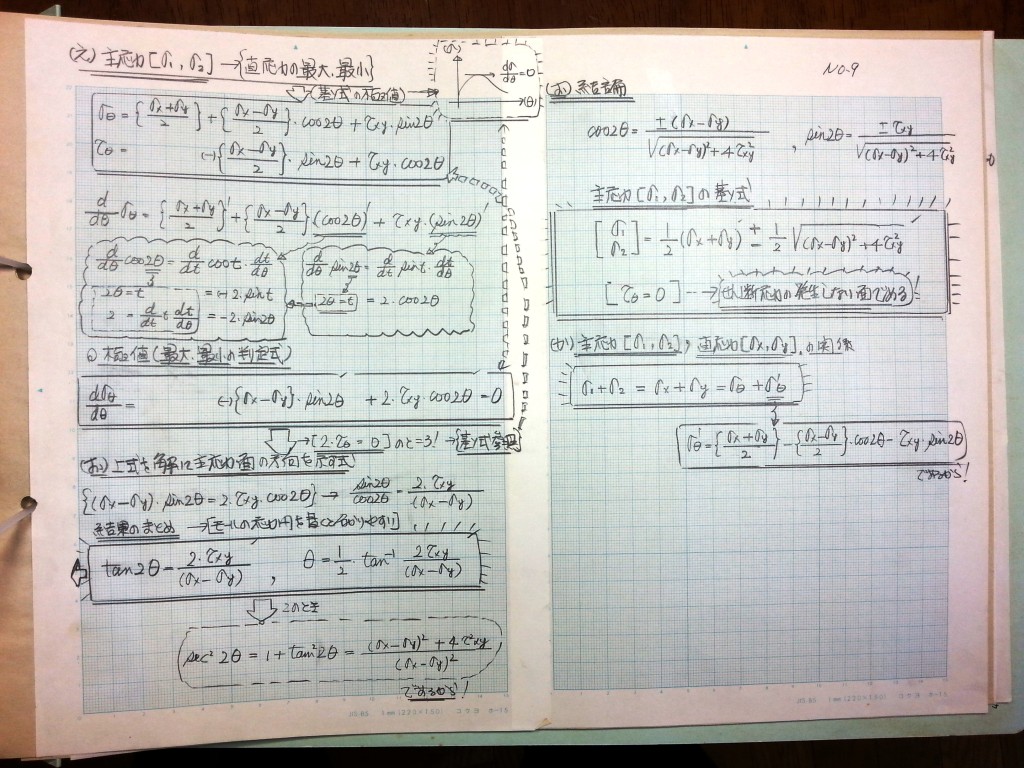 (え) 主応力[σ1, σ2] →{直応力の最大、最小}
(基リ式の極値)
(σ)
dσ/dθ=0
(θ)
σθ={(σx+σy)/2}+{(σx-σy)/2}·cos2θ+τxy·sin2θ
τθ= (-){(σx-σy)/2}·sin2θ+τxy·cos2θ
d/dθ σθ={(σx+σy)/2}'+{(σx-σy)/2}(cos2θ)'+τxy·(sin2θ)'
d/dθ cos2θ=d/dt cost·dt/dθ
2θ=t =(-)2·sint
2=d/dt t dt/dθ =-2·sin2θ
d/dθ sin2θ=d/dt sint·dt/dθ
2θ=t =2·cos2θ
極値(最大、最小の判定式)
dσθ/dθ= (-){σx-σy}·sin2θ +2·τxy·cos2θ=0
→[2·τθ=0]のとき! →{基リ式参照}
(お) 上式を解に主応力面の方向を示す式
{(σx-σy)·sin2θ=2·τxy·cos2θ} → sin2θ/cos2θ=2·τxy/(σx-σy)
結果のまとめ →[モールの応力円を
tan2θ=2·τxy/(σx-σy) , θ=1/2·tan⁻¹ 2τxy/(σx-σy)
このとき
sec²2θ=1+tan²2θ=((σx-σy)²+4·τ²xy)/(σx-σy)²
であるから!
NO-9
(お) 結言論
cos2θ=±(σx-σy)/√((σx-σy)²+4τ²xy) , sin2θ=±τxy/√((σx-σy)²+4τ²xy)
主応力[σ1, σ2]の基リ式!
[σ1 σ2]=1/2(σx+σy)±1/2√((σx-σy)²+4τ²xy)
[τθ=0] → {せん断応力の発生しない面である}!
(か) 主応力[σ1, σ2], 直応力[σx, σy], の関係
σ1+σ2=σx+σy=σθ+σ'θ
σ'θ={(σx+σy)/2}-{(σx-σy)/2}·cos2θ-τxy·sin2θ
であるから!